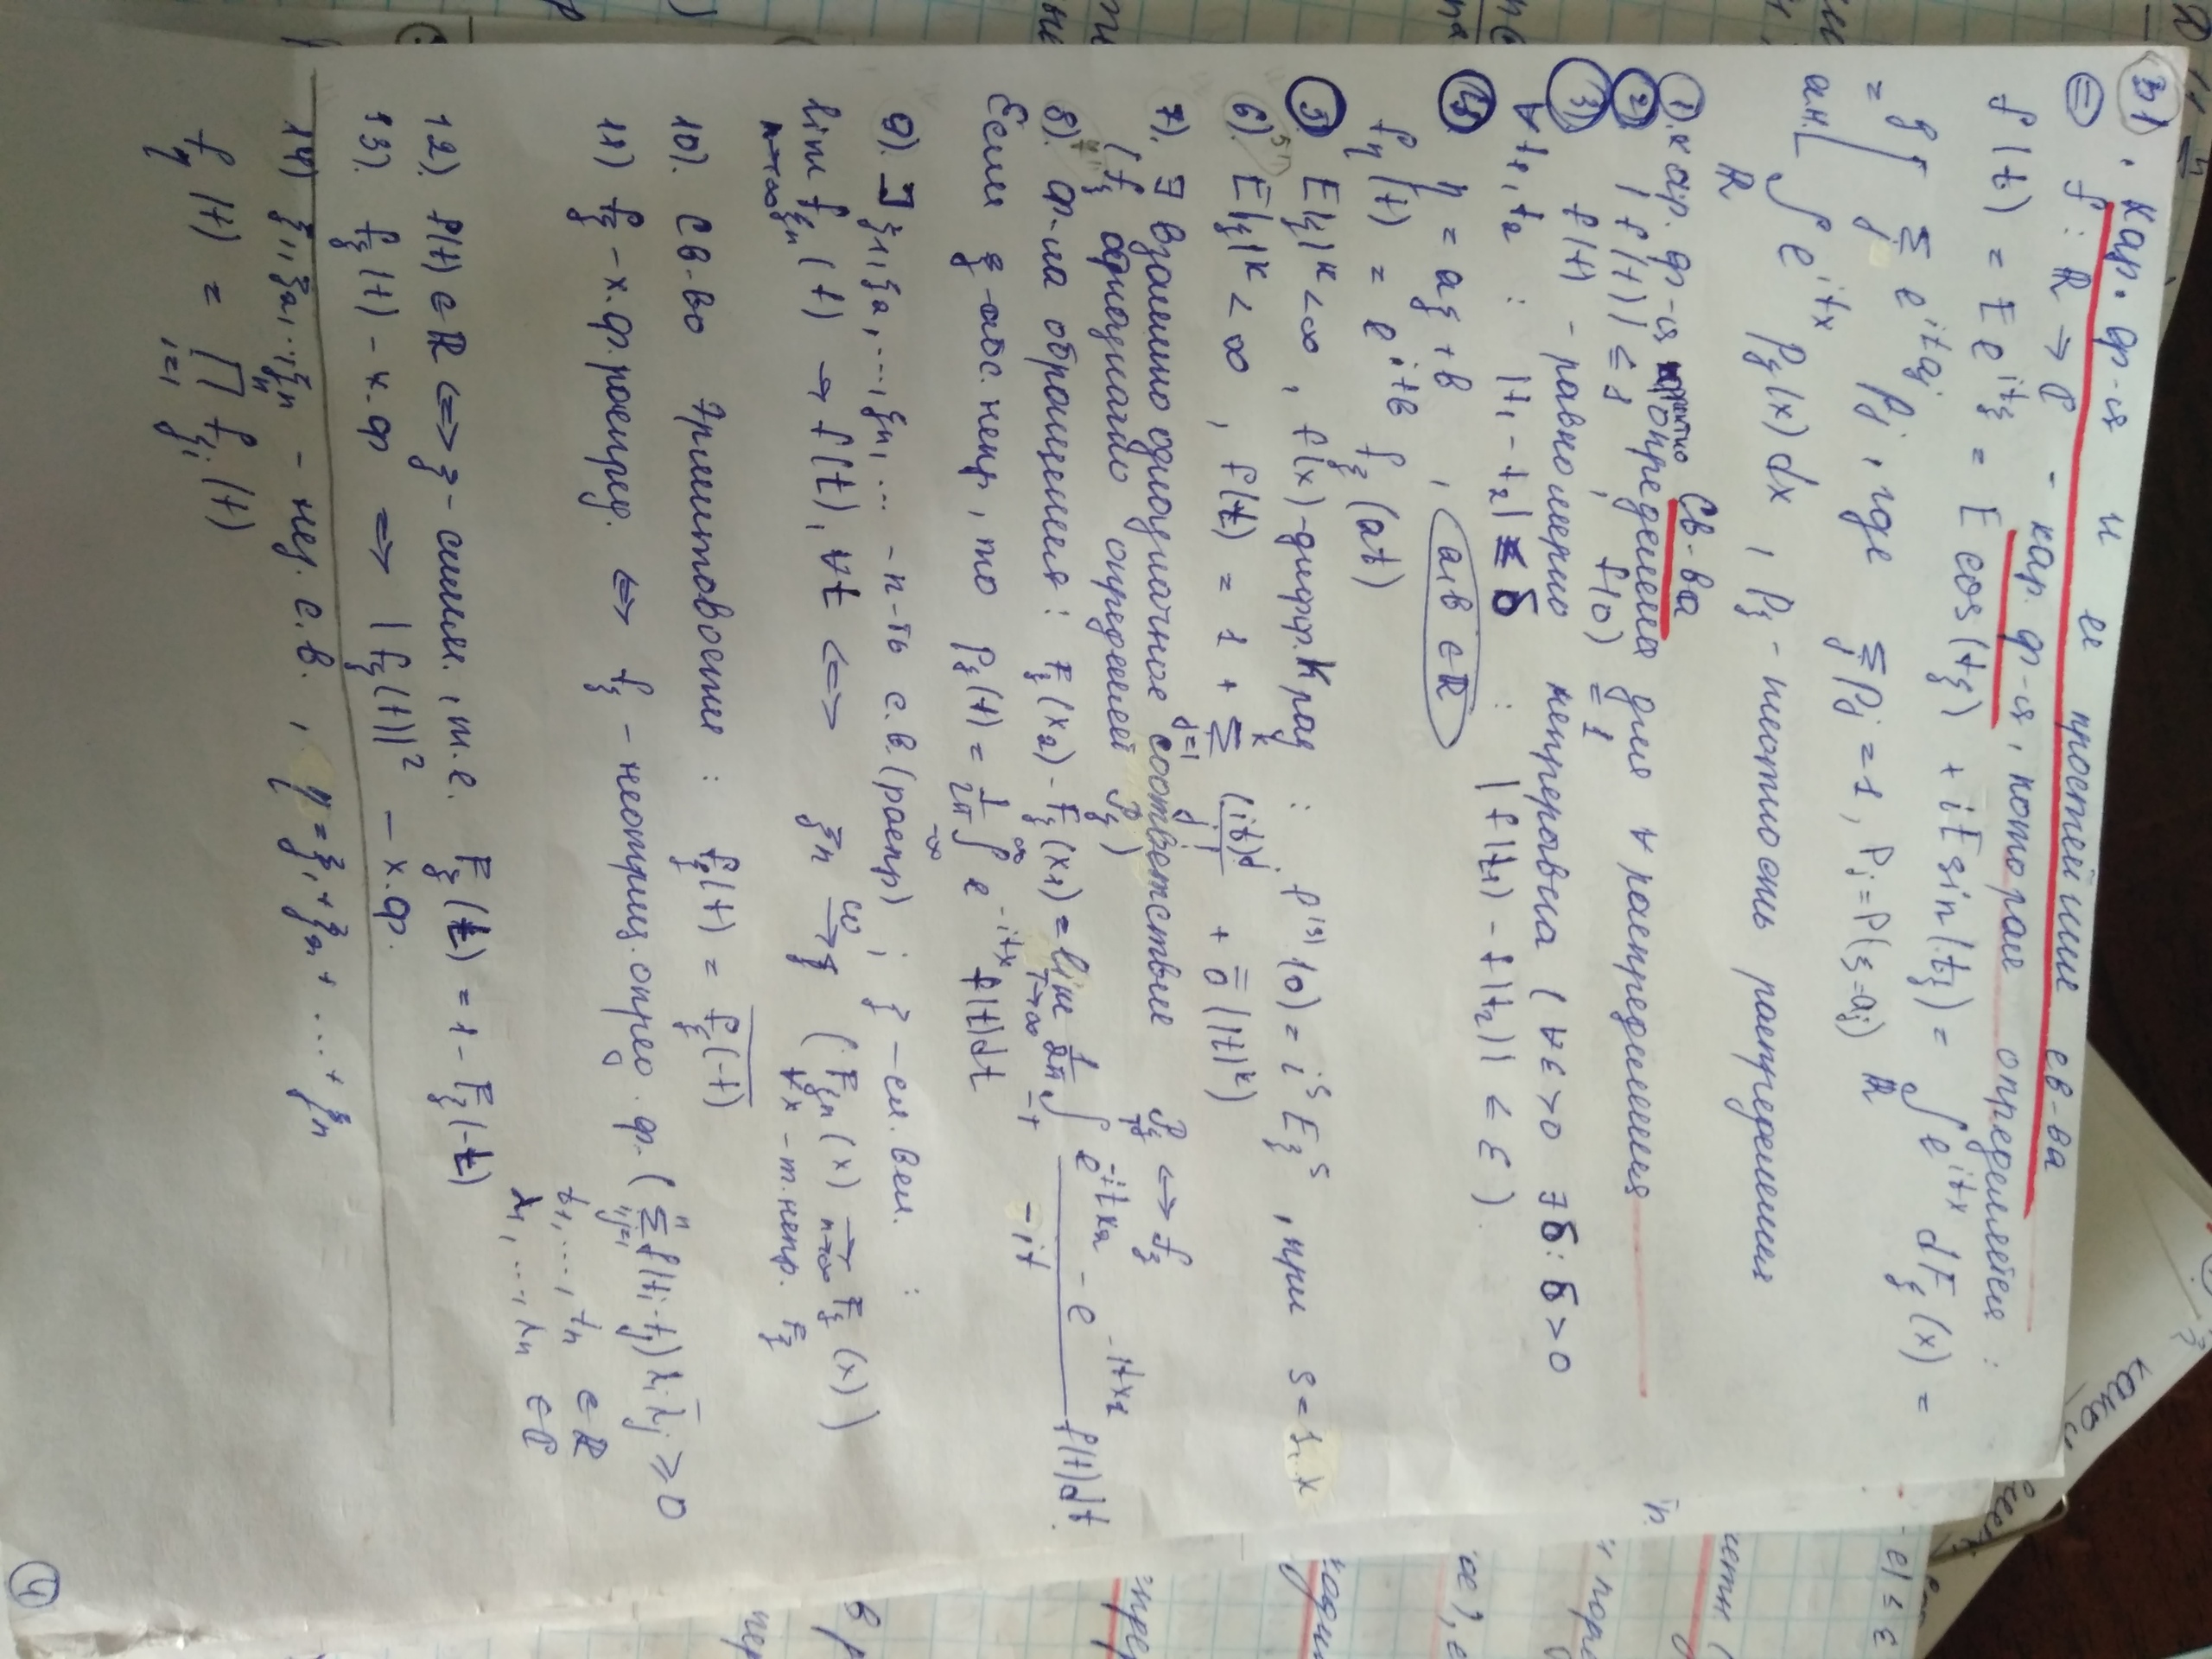 31. Хар. ф-я и ее простейшие св-ва
⊜ f: ℝ → ℂ - хар. ф-я, которая определяется:
f(t) = E e^{itξ} = E cos(tξ) + iE sin(tξ) = ∫_ℝ e^{itx} dF_ξ(x) =
= д [ Σ_j e^{ita_j} p_j, где Σ_j p_j = 1, P_j = P(ξ=a_j)
а.н. ∫_ℝ e^{itx} p_ξ(x) dx, p_ξ - плотность распределения
Св-ва
1). хар. ф-я корректно определена для ∀ распределения
2) |f(t)| ≤ 1, f(0) = 1
3) f(t) - равномерно непрерывна (∀ε>0 ∃δ: δ>0
∀t₁,t₂ : |t₁ - t₂| ≤ δ : |f(t₁) - f(t₂)| ≤ ε).
4) η = aξ + b, a,b ∈ ℝ
f_η(t) = e^{itb} f_ξ(at)
5) E|ξ|^k < ∞, f(x) - дифф. k раз : f^{(s)}(0) = i^s Eξ^s, при s = 1,k
6). E|ξ|^k < ∞, f(t) = 1 + Σ_{j=1}^{k} (it)^j / j! + ō(|t|^k)
7). ∃ взаимно однозначное соответствие P_ξ ↔ f_ξ
(f_ξ однозначно определяет P_ξ)
8). Ф-ла обращения: F_ξ(x₂) - F_ξ(x₁) = lim_{T→∞} 1/2π ∫_{-T}^{T} (e^{-itx₂} - e^{-itx₁}) / (-it) f(t)dt.
Если ξ - абс. непр, то p_ξ(t) = 1/2π ∫_{-∞}^{∞} e^{-itx} f(t)dt
9). ∃ ξ₁, ξ₂, ..., ξn, ... - п-ть с.в. (распр); ξ - сл. вел. :
lim_{n→∞} f_{ξn}(t) → f(t), ∀t ⇔ ξn →^ω ξ (F_{ξn}(x) →_{n→∞} F_ξ(x))
∀x - т. непр. F_ξ
10). Св-во Эрмитовости : f_ξ(t) = \overline{f_ξ(-t)}
11) f_ξ - х.ф. распред. ⇔ f_ξ - неотриц. опред. ф. (Σ_{i,j=1}^{n} f(t_i - t_j) λ_i λ̄_j ≥ 0
t₁, ..., tn ∈ ℝ
λ₁, ..., λn ∈ ℂ
12). f(t) ∈ ℝ ⇔ ξ - симм., т.е. F_ξ(t) = 1 - F_ξ(-t)
13). f_ξ(t) - х.ф ⇒ |f_ξ(t)|² - х.ф.
14) ξ₁, ξ₂, .., ξn - нез. с.в., η = ξ₁ + ξ₂ + ... + ξn
f_η(t) = Π_{i=1}^{n} f_{ξi}(t)
4